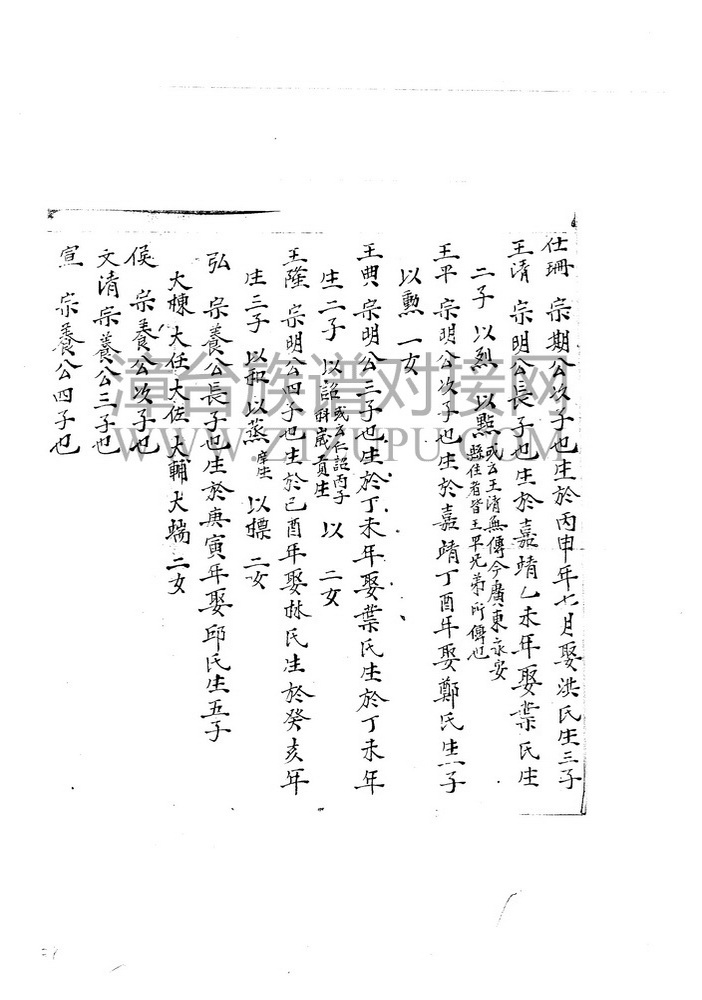 仕珊 宗期公次子也生於丙申年七月娶洪氏生三子
王清 宗明公長子也生於嘉靖乙未年娶葉氏生
二子 以烈 以點 或云王清無傳今廣東永安
縣住者皆王平兄弟所傳也
王平 宗明公次子也生於嘉靖丁酉年娶鄭氏生一子
以勲 一女
王典 宗明公三子也生於丁未年娶葉氏生於丁未年
生二子 以詔 或云仁詔丙子
科歲貢生 以 二女
王隆 宗明公四子也生於己酉年娶林氏生於癸亥年
生三子 以和 以蒸 以標 二女
弘 宗養公長子也生於庚寅年娶邱氏生五子
大棟 大任 大佐 大輔 大端 二女
侯 宗養公次子也
文清 宗養公三子也
宣 宗養公四子也
漳台族谱对接网
WWW.ZTZUPU.COM